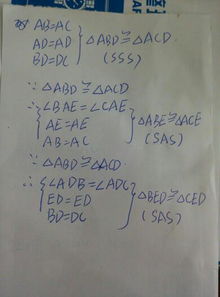 AB=AC
AD=AD } △ABD≅△ACD
BD=DC (SSS)
∵ △ABD≅△ACD
∴ { ∠BAE=∠CAE
AE=AE } △ABE≅△ACE
AB=AC (SAS)
∵ △ABD≅△ACD
∴ { ∠ADB=∠ADC
ED=ED } △BED≅△CED
BD=DC (SAS)